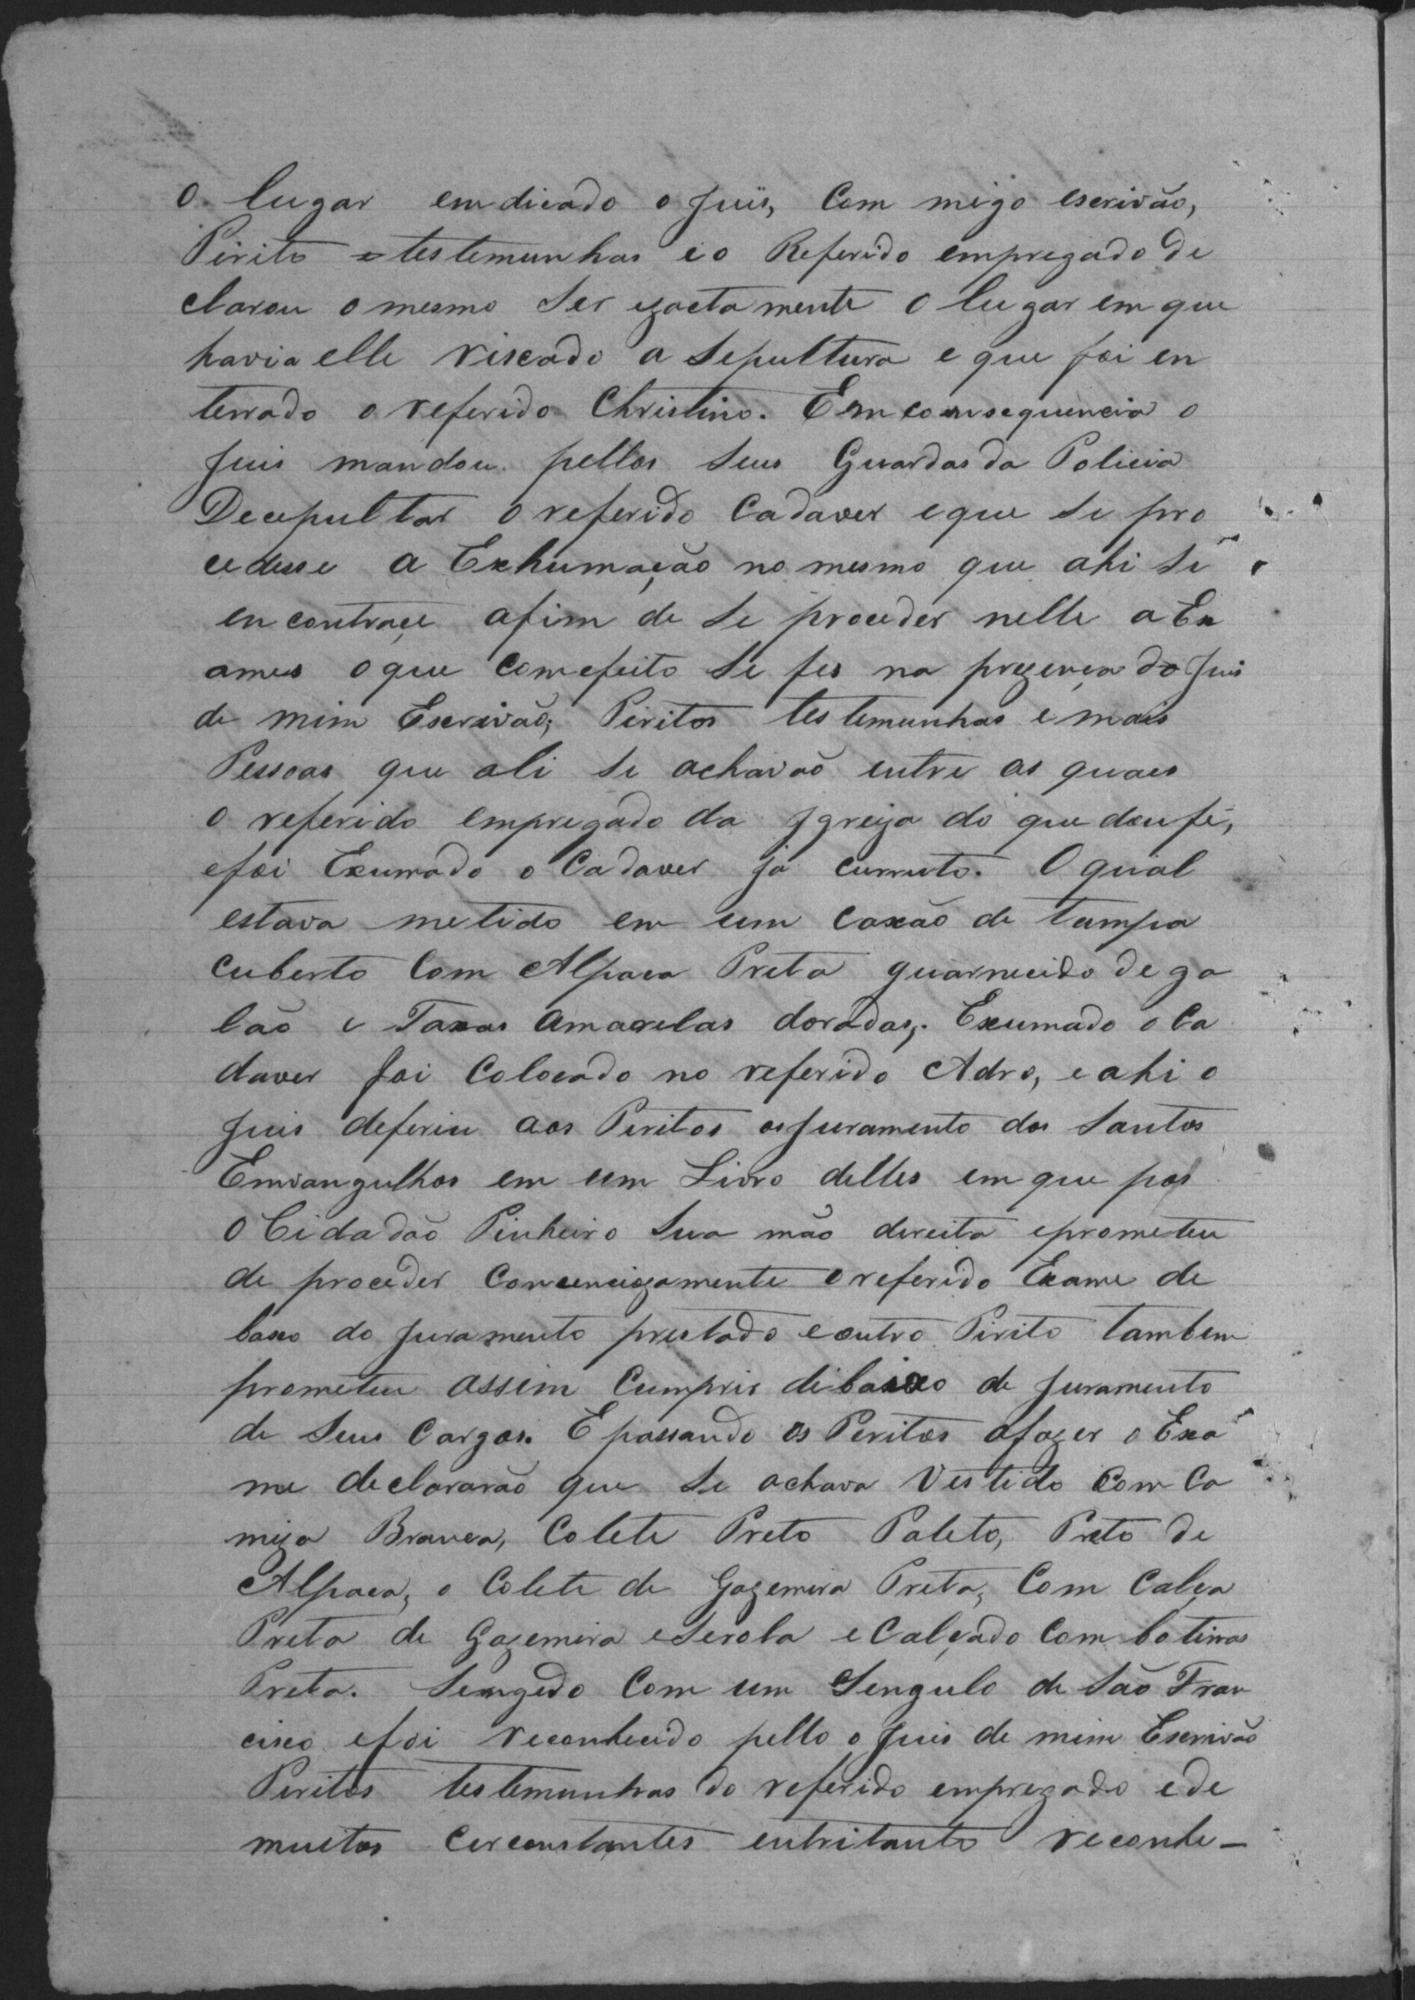 o lugar emdicado o Juis, Com migo escrivão,
Pirito e testemunhas e o Referido empregado de
clarou o mesmo Ser ezactamente o lugar em que
havia elle riscado a Sepultura e que foi en
terrado o referido Christino. Em comsequencia o
Juis mandou pellos Seus Guardas da Policia
Decepultar o referido Cadaver e que se pro
cedesse a Exhumação no mesmo que ahi Se
encontraçe afim de Se proceder nelle a Ex
ames o que Com efeito Se fes na prezença do Juis
de mim Escrivão, Piritos testemunhas e mais
Pessoas que ali se achavão entre as quaes
o referido empregado da Igreija do que dou fé,
e foi Exumado o Cadaver já currruto. O qual
estava metido em um Caxão de tampa
Cuberto Com Alpaca Preta guarnecido de ga
lão e Taxas Amarelas doradas. Exumado o Ca
daver foi Colocado no referido Adro, e ahi o
Juis deferiu aos Piritos os Juramento dos Santos
Emvangulhos em um Livro delles em que pos
O Cidadão Pinheiro Sua mão direita e prometeu
de proceder Concenciozamente o referido Exame de
baxo do Juramento prestado e outro Pirito tambem
prometeu assim Cumprir dibaixo de Juramento
de Seus Cargos. E passando os Peritos a fazer o Exa
me declararão que Se achava Vestido Com Ca
miza Branca, Colete Preto Paleto, Preto de
Alpaca, o Colete de Gazemira Preta, Com Calça
Preta de Gazemira e Serola e Calçado Com botinas
Preta. Semgedo Com um Sengulo de São Fran
cisco e foi reconhecido pello o Juis de mim Escrivão
Piritos testemunhas do referido empregado e de
muitos Cerconstantes entritanto reconhe-